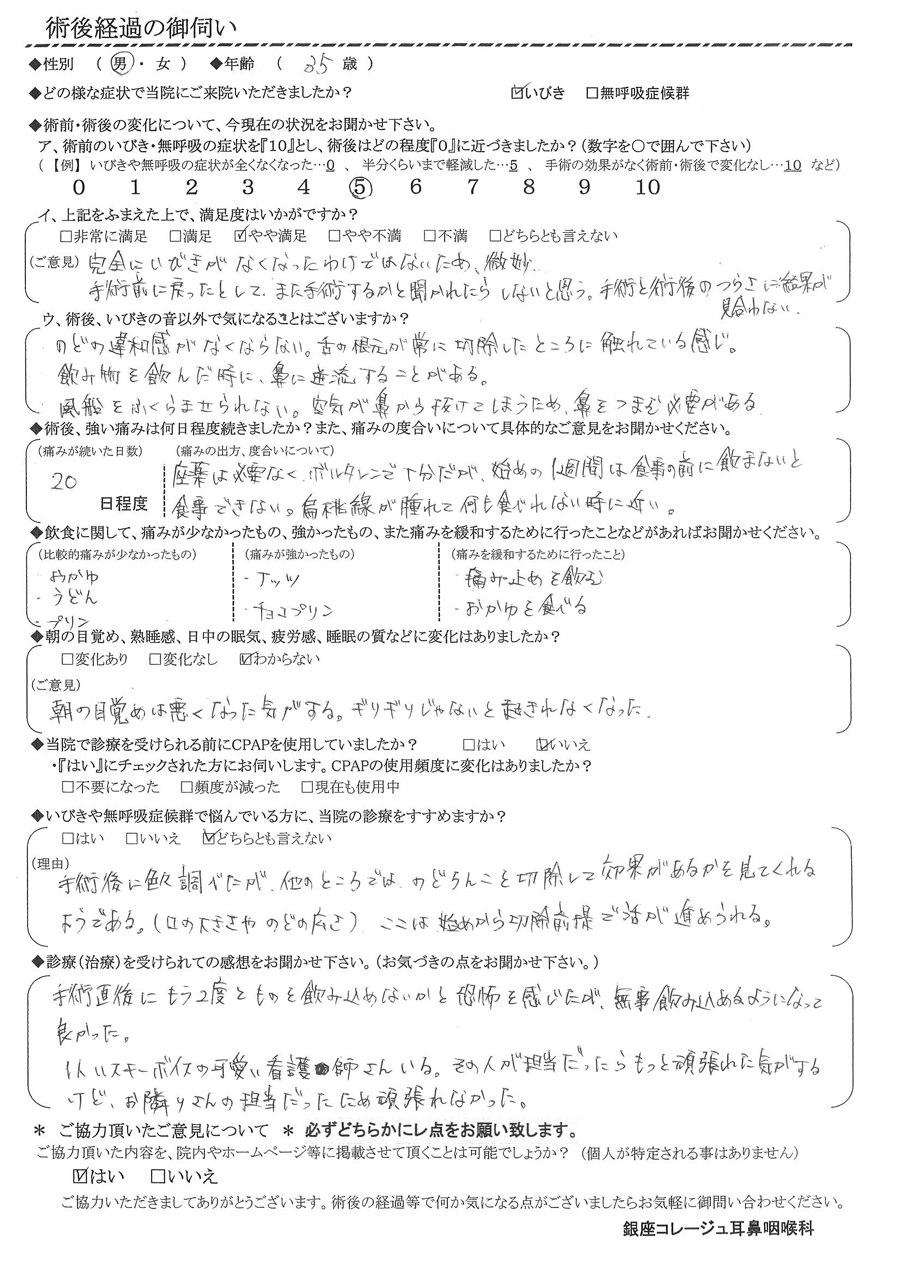 術後経過の御伺い
◆性別 ( 男 ・ 女 ) ◆年齢 ( 35 歳 )
◆どの様な症状で当院にご来院いただきましたか? ☑いびき □無呼吸症候群
◆術前・術後の変化について、今現在の状況をお聞かせ下さい。
ア、術前のいびき・無呼吸の症状を『10』とし、術後はどの程度『0』に近づきましたか?(数字を○で囲んで下さい)
(【例】いびきや無呼吸の症状が全くなくなった…0 、 半分くらいまで軽減した…5 、 手術の効果がなく術前・術後で変化なし…10 など)
0 1 2 3 4 ⑤ 6 7 8 9 10
イ、上記をふまえた上で、満足度はいかがですか?
□非常に満足 □満足 ☑やや満足 □やや不満 □不満 □どちらとも言えない
(ご意見) 完全にいびきがなくなったわけではないため、微妙..
手術前に戻ったとして、また手術するかと聞かれたらしないと思う。手術と術後のつらさに結果が
見合わない.
ウ、術後、いびきの音以外で気になることはございますか?
のどの違和感がなくならない。舌の根元が常に切除したところに触れている感じ。
飲み物を飲んだ時に、鼻に逆流することがある。
風船をふくらませられない。空気が鼻から抜けてしまうため、鼻をつまむ必要がある.
◆術後、強い痛みは何日程度続きましたか?また、痛みの度合いについて具体的なご意見をお聞かせください。
(痛みが続いた日数) (痛みの出方、度合いについて)
20 日程度
座薬は必要なく、ボルタレンで十分だが、始めの1週間は食事の前に飲まないと
食事できない。扁桃線が腫れて何も食べれない時に近い。
◆飲食に関して、痛みが少なかったもの、強かったもの、また痛みを緩和するために行ったことなどがあればお聞かせください。
(比較的痛みが少なかったもの) (痛みが強かったもの) (痛みを緩和するために行ったこと)
・おかゆ ・ナッツ ・痛み止めを飲む
・うどん ・チョコプリン ・おかゆを食べる
・プリン
◆朝の目覚め、熟睡感、日中の眠気、疲労感、睡眠の質などに変化はありましたか?
□変化あり □変化なし ☑わからない
(ご意見)
朝の目覚めは悪くなった気がする。ギリギリじゃないと起きれなくなった.
◆当院で診療を受けられる前にCPAPを使用していましたか? □はい ☑いいえ
・『はい』にチェックされた方にお伺いします。CPAPの使用頻度に変化はありましたか?
□不要になった □頻度が減った □現在も使用中
◆いびきや無呼吸症候群で悩んでいる方に、当院の診療をすすめますか?
□はい □いいえ ☑どちらとも言えない
(理由)
手術後に色々調べたが、他のところでは、のどちんこを切除して効果があるかを見てくれる
ようである。(口の大きさやのどの広さ) ここは始めから切除前提で話が進められる。
◆診療(治療)を受けられての感想をお聞かせ下さい。(お気づきの点をお聞かせ下さい。)
手術直後にもう2度とものを飲み込めないかと恐怖を感じたが、無事飲み込めるようになって
良かった。
1人ハスキーボイスの可愛い看護師さんいる。その人が担当だったらもっと頑張れた気がする
けど、お隣りさんの担当だったため頑張れなかった。
* ご協力頂いたご意見について * 必ずどちらかにレ点をお願い致します。
ご協力頂いた内容を、院内やホームページ等に掲載させて頂くことは可能でしょうか? (個人が特定される事はありません)
☑はい □いいえ
ご協力いただきましてありがとうございます。術後の経過等で何か気になる点がございましたらお気軽に御問い合わせください。
銀座コレージュ耳鼻咽喉科